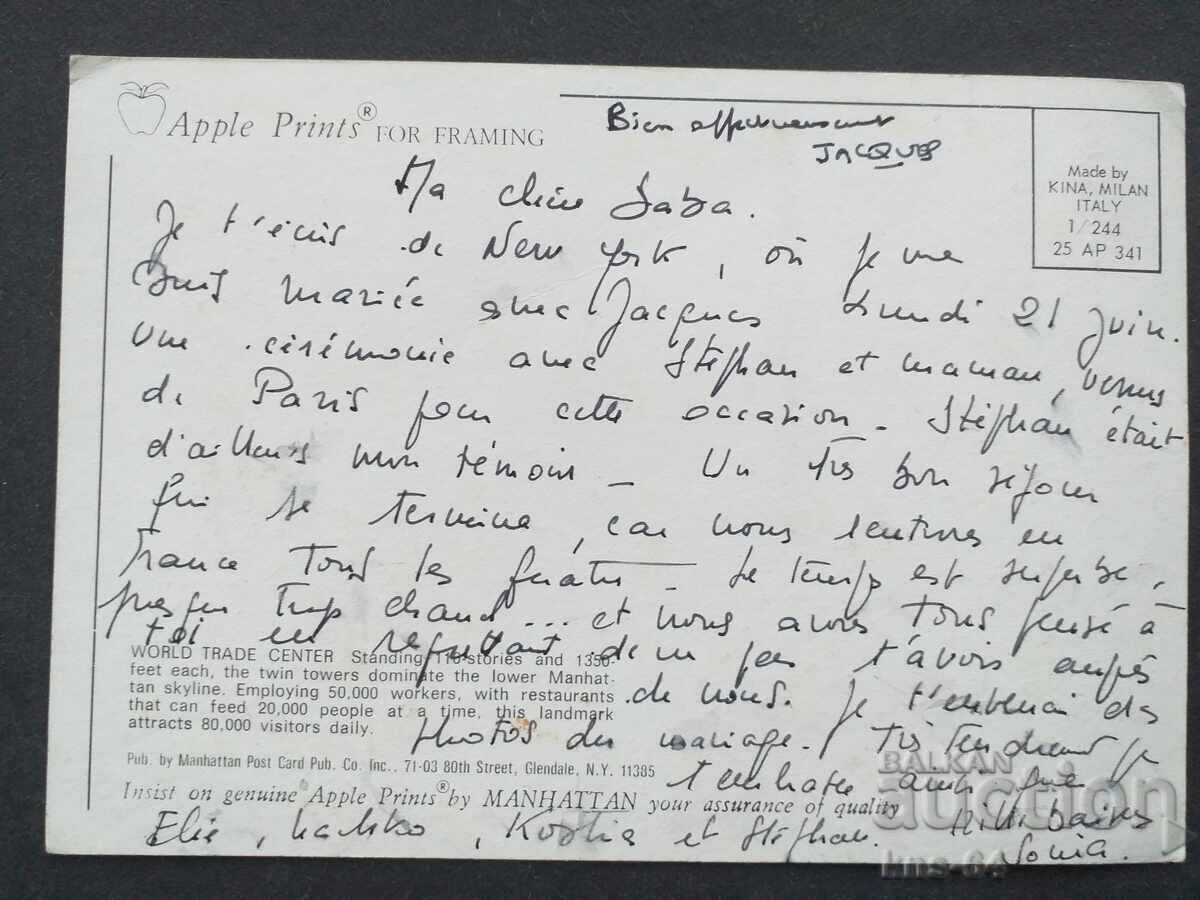 Apple Prints® FOR FRAMING
Bien affectueusement
JACQUES
Made by
KINA, MILAN
ITALY
1/244
25 AP 341
Ma chère Baba.
Je t'écris de New York, où je me
suis mariée avec Jacques Lundi 21 juin.
Une cérémonie avec Stéphan et maman, venus
de Paris pour cette occasion - Stéphan était
d'ailleurs mon témoin - Un très bon séjour
qui se termine, car nous rentrons en
France tous les quatre - Le temps est superbe,
presque trop chaud... et nous avons tous pensé à
toi en regrettant de ne pas t'avoir auprès
de nous. Je t'enverrai des
photos du mariage. Très tendrement je
t'embrasse ainsi que
Elie, Kostia et Stéphan. Mille baisers
Sonia.
WORLD TRADE CENTER Standing 110 stories and 1350-
feet each, the twin towers dominate the lower Manhat-
tan skyline. Employing 50,000 workers, with restaurants
that can feed 20,000 people at a time, this landmark
attracts 80,000 visitors daily.
Pub. by Manhattan Post Card Pub. Co. Inc., 71-03 80th Street, Glendale, N.Y. 11385
Insist on genuine Apple Prints® by MANHATTAN your assurance of quality
BALKAN
auction
kns-64